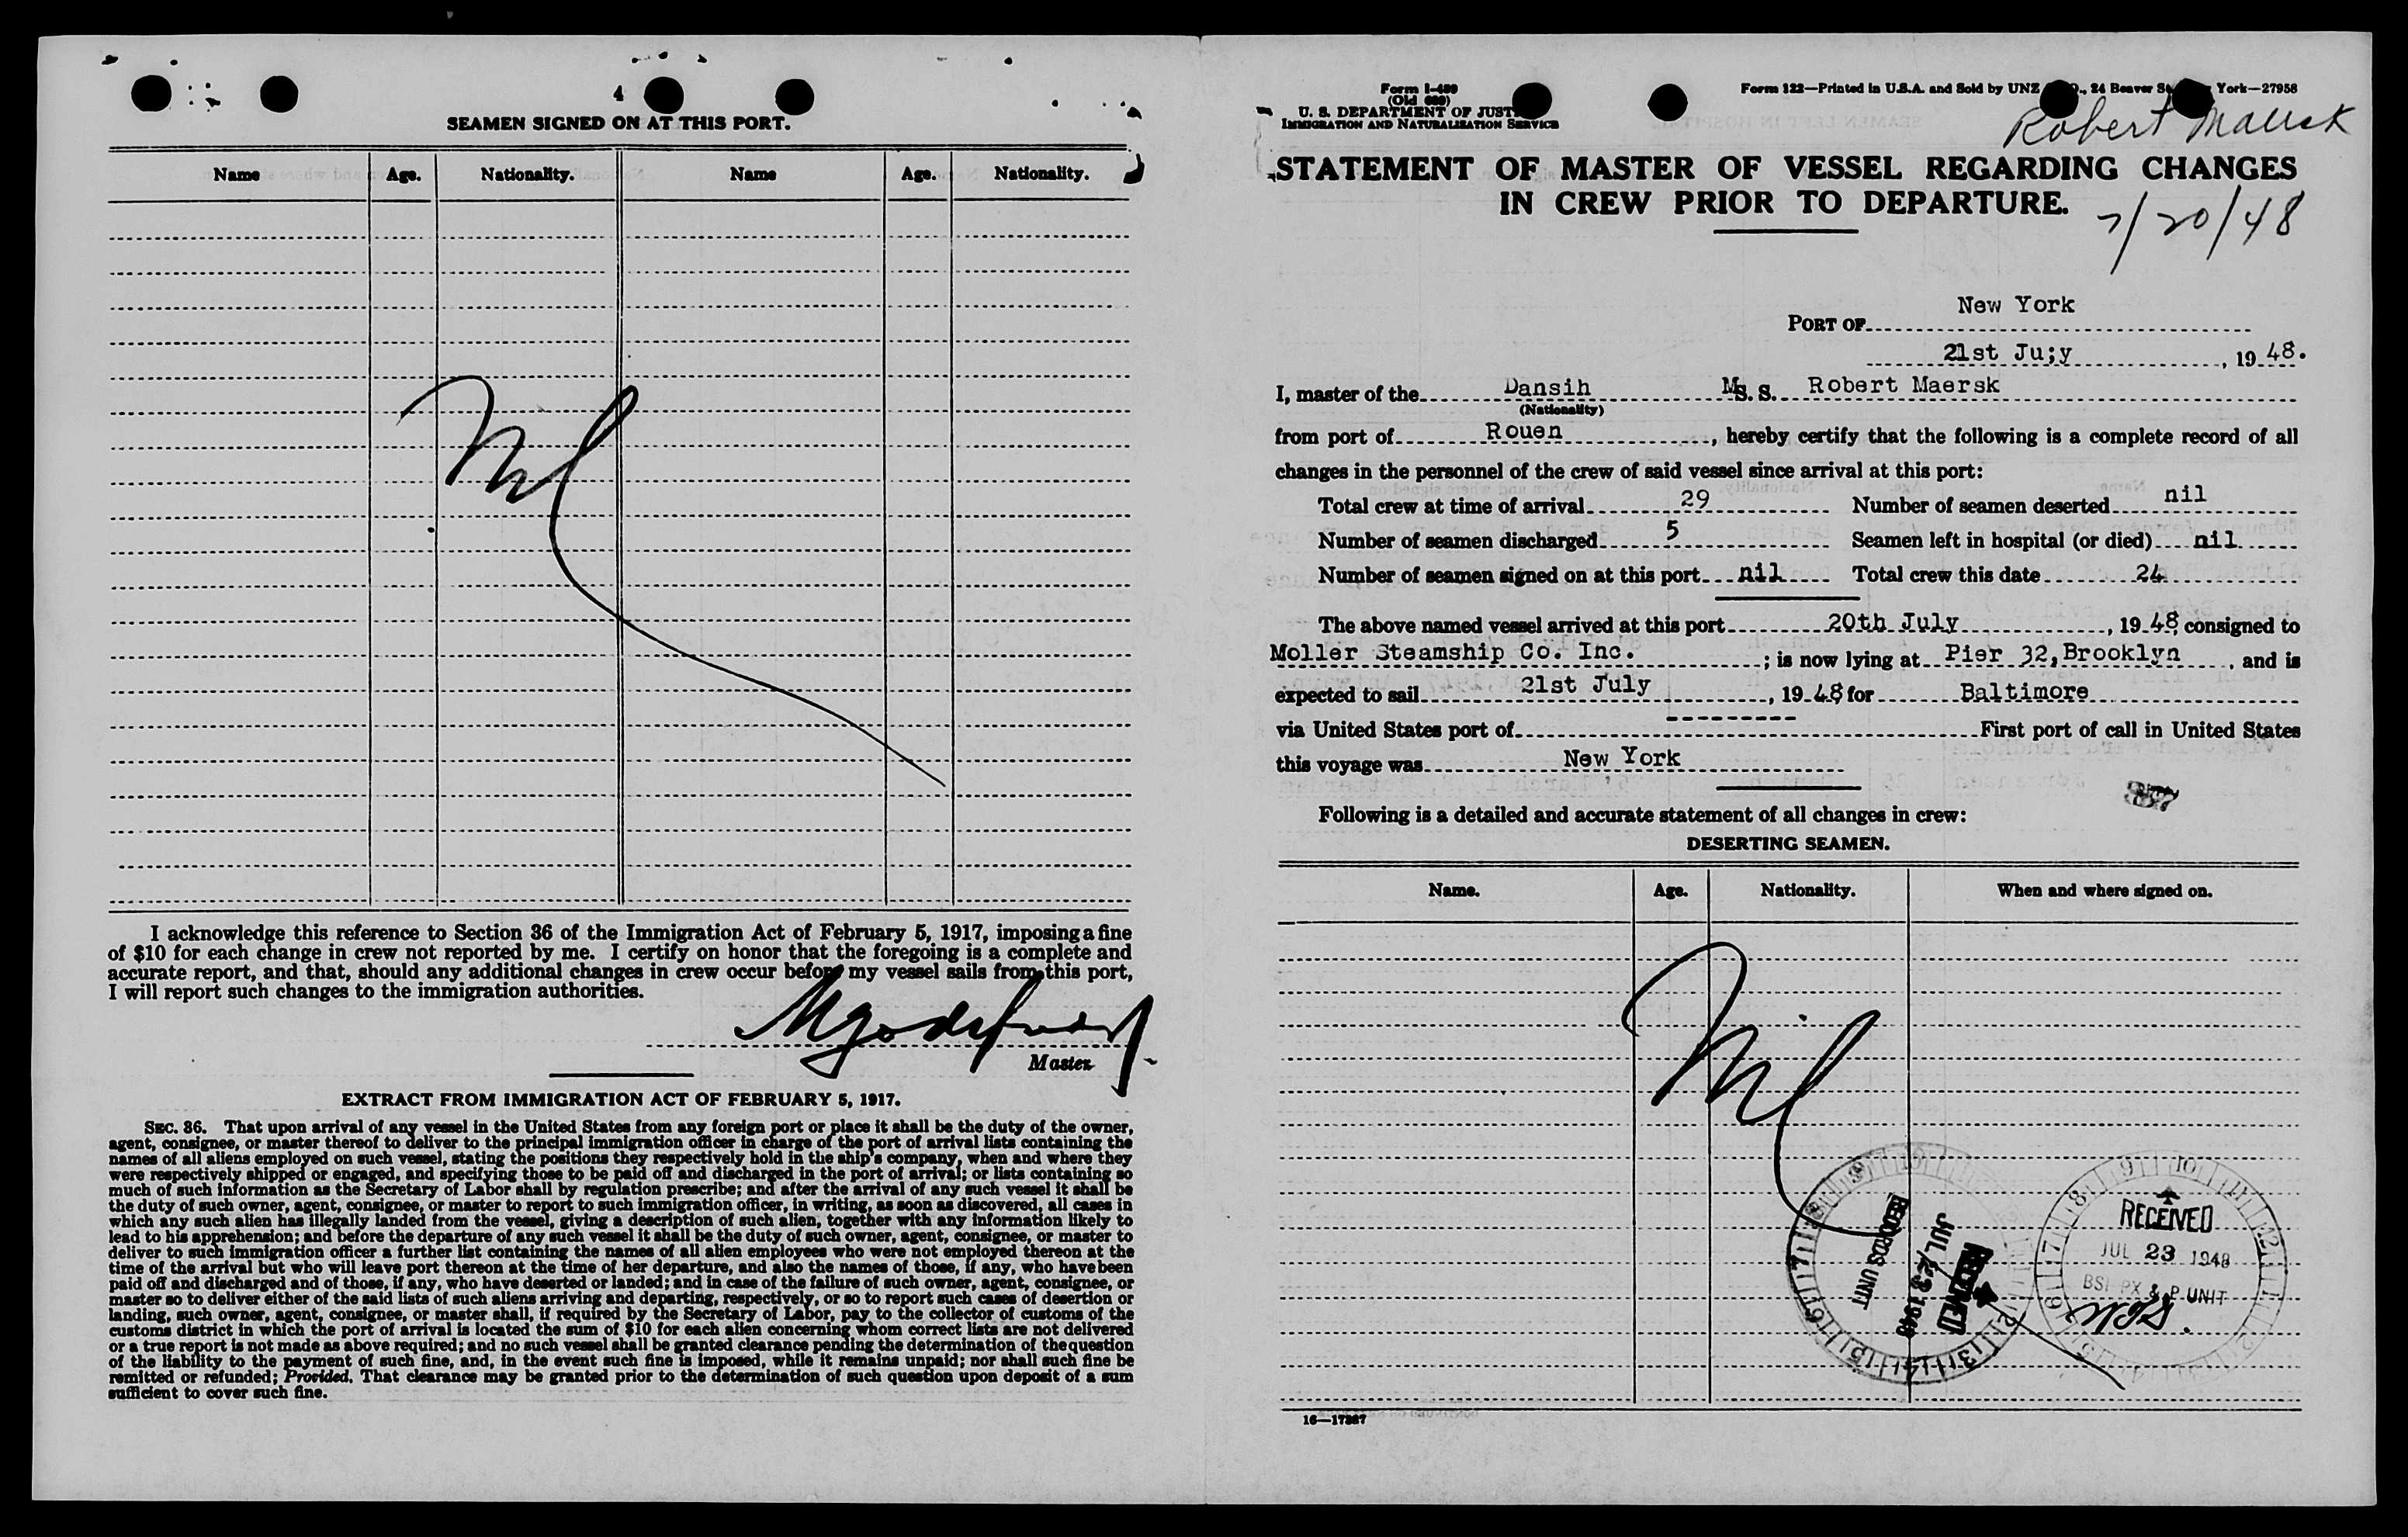 4
SEAMEN SIGNED ON AT THIS PORT.
Name Age. Nationality. Name Age. Nationality.
Nil
I acknowledge this reference to Section 36 of the Immigration Act of February 5, 1917, imposing a fine
of $10 for each change in crew not reported by me. I certify on honor that the foregoing is a complete and
accurate report, and that, should any additional changes in crew occur before my vessel sails from this port,
I will report such changes to the immigration authorities.
Master
EXTRACT FROM IMMIGRATION ACT OF FEBRUARY 5, 1917.
SEC. 36. That upon arrival of any vessel in the United States from any foreign port or place it shall be the duty of the owner,
agent, consignee, or master thereof to deliver to the principal immigration officer in charge of the port of arrival lists containing the
names of all aliens employed on such vessel, stating the positions they respectively hold in the ship's company, when and where they
were respectively shipped or engaged, and specifying those to be paid off and discharged in the port of arrival; or lists containing so
much of such information as the Secretary of Labor shall by regulation prescribe; and after the arrival of any such vessel it shall be
the duty of such owner, agent, consignee, or master to report to such immigration officer, in writing, as soon as discovered, all cases in
which any such alien has illegally landed from the vessel, giving a description of such alien, together with any information likely to
lead to his apprehension; and before the departure of any such vessel it shall be the duty of such owner, agent, consignee, or master to
deliver to such immigration officer a further list containing the names of all alien employees who were not employed thereon at the
time of the arrival but who will leave port thereon at the time of her departure, and also the names of those, if any, who have been
paid off and discharged and of those, if any, who have deserted or landed; and in case of the failure of such owner, agent, consignee, or
master so to deliver either of the said lists of such aliens arriving and departing, respectively, or so to report such cases of desertion or
landing, such owner, agent, consignee, or master shall, if required by the Secretary of Labor, pay to the collector of customs of the
customs district in which the port of arrival is located the sum of $10 for each alien concerning whom correct lists are not delivered
or a true report is not made as above required; and no such vessel shall be granted clearance pending the determination of the question
of the liability to the payment of such fine, and, in the event such fine is imposed, while it remains unpaid; nor shall such fine be
remitted or refunded; Provided, That clearance may be granted prior to the determination of such question upon deposit of a sum
sufficient to cover such fine.
Form I-489
(Old 689)
U. S. DEPARTMENT OF JUST
IMMIGRATION AND NATURALIZATION SERVICE
Form 122—Printed in U.S.A. and Sold by UNZ , 24 Beaver St York—27958
Robert Maersk
STATEMENT OF MASTER OF VESSEL REGARDING CHANGES
IN CREW PRIOR TO DEPARTURE.
7/20/48
PORT OF New York
21st Ju;y, 19 48.
I, master of the Dansih MS. S. Robert Maersk
(Nationality)
from port of Rouen, hereby certify that the following is a complete record of all
changes in the personnel of the crew of said vessel since arrival at this port:
Total crew at time of arrival 29 Number of seamen deserted nil
Number of seamen discharged 5 Seamen left in hospital (or died) nil
Number of seamen signed on at this port nil Total crew this date 24
The above named vessel arrived at this port 20th July, 19 48, consigned to
Moller Steamship Co. Inc.; is now lying at Pier 32, Brooklyn, and is
expected to sail 21st July, 19 48 for Baltimore
via United States port of --------- First port of call in United States
this voyage was New York
Following is a detailed and accurate statement of all changes in crew:
DESERTING SEAMEN.
Name. Age. Nationality. When and where signed on.
Nil
RECORDS UNIT
JUL 23 1948
RECEIVED
RECEIVED
JUL 23 1948
BSI PX & P UNIT
16—17387